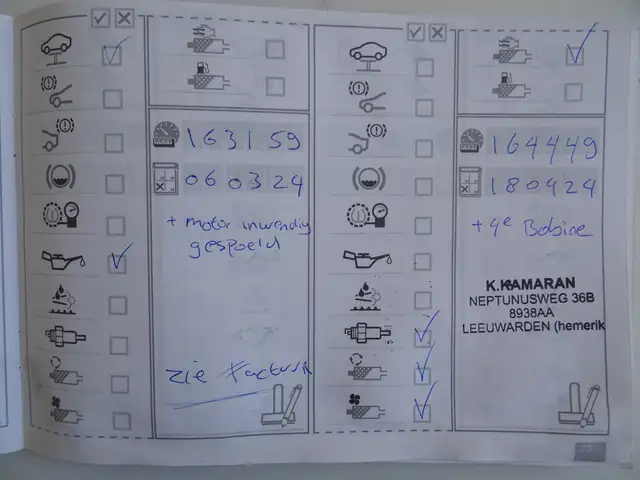 163159
060324
+ motor inwendig
gespoeld
zie Factuur
164449
180424
+ 4e Bobine
K.KAMARAN
NEPTUNUSWEG 36B
8938AA
LEEUWARDEN (hemerik